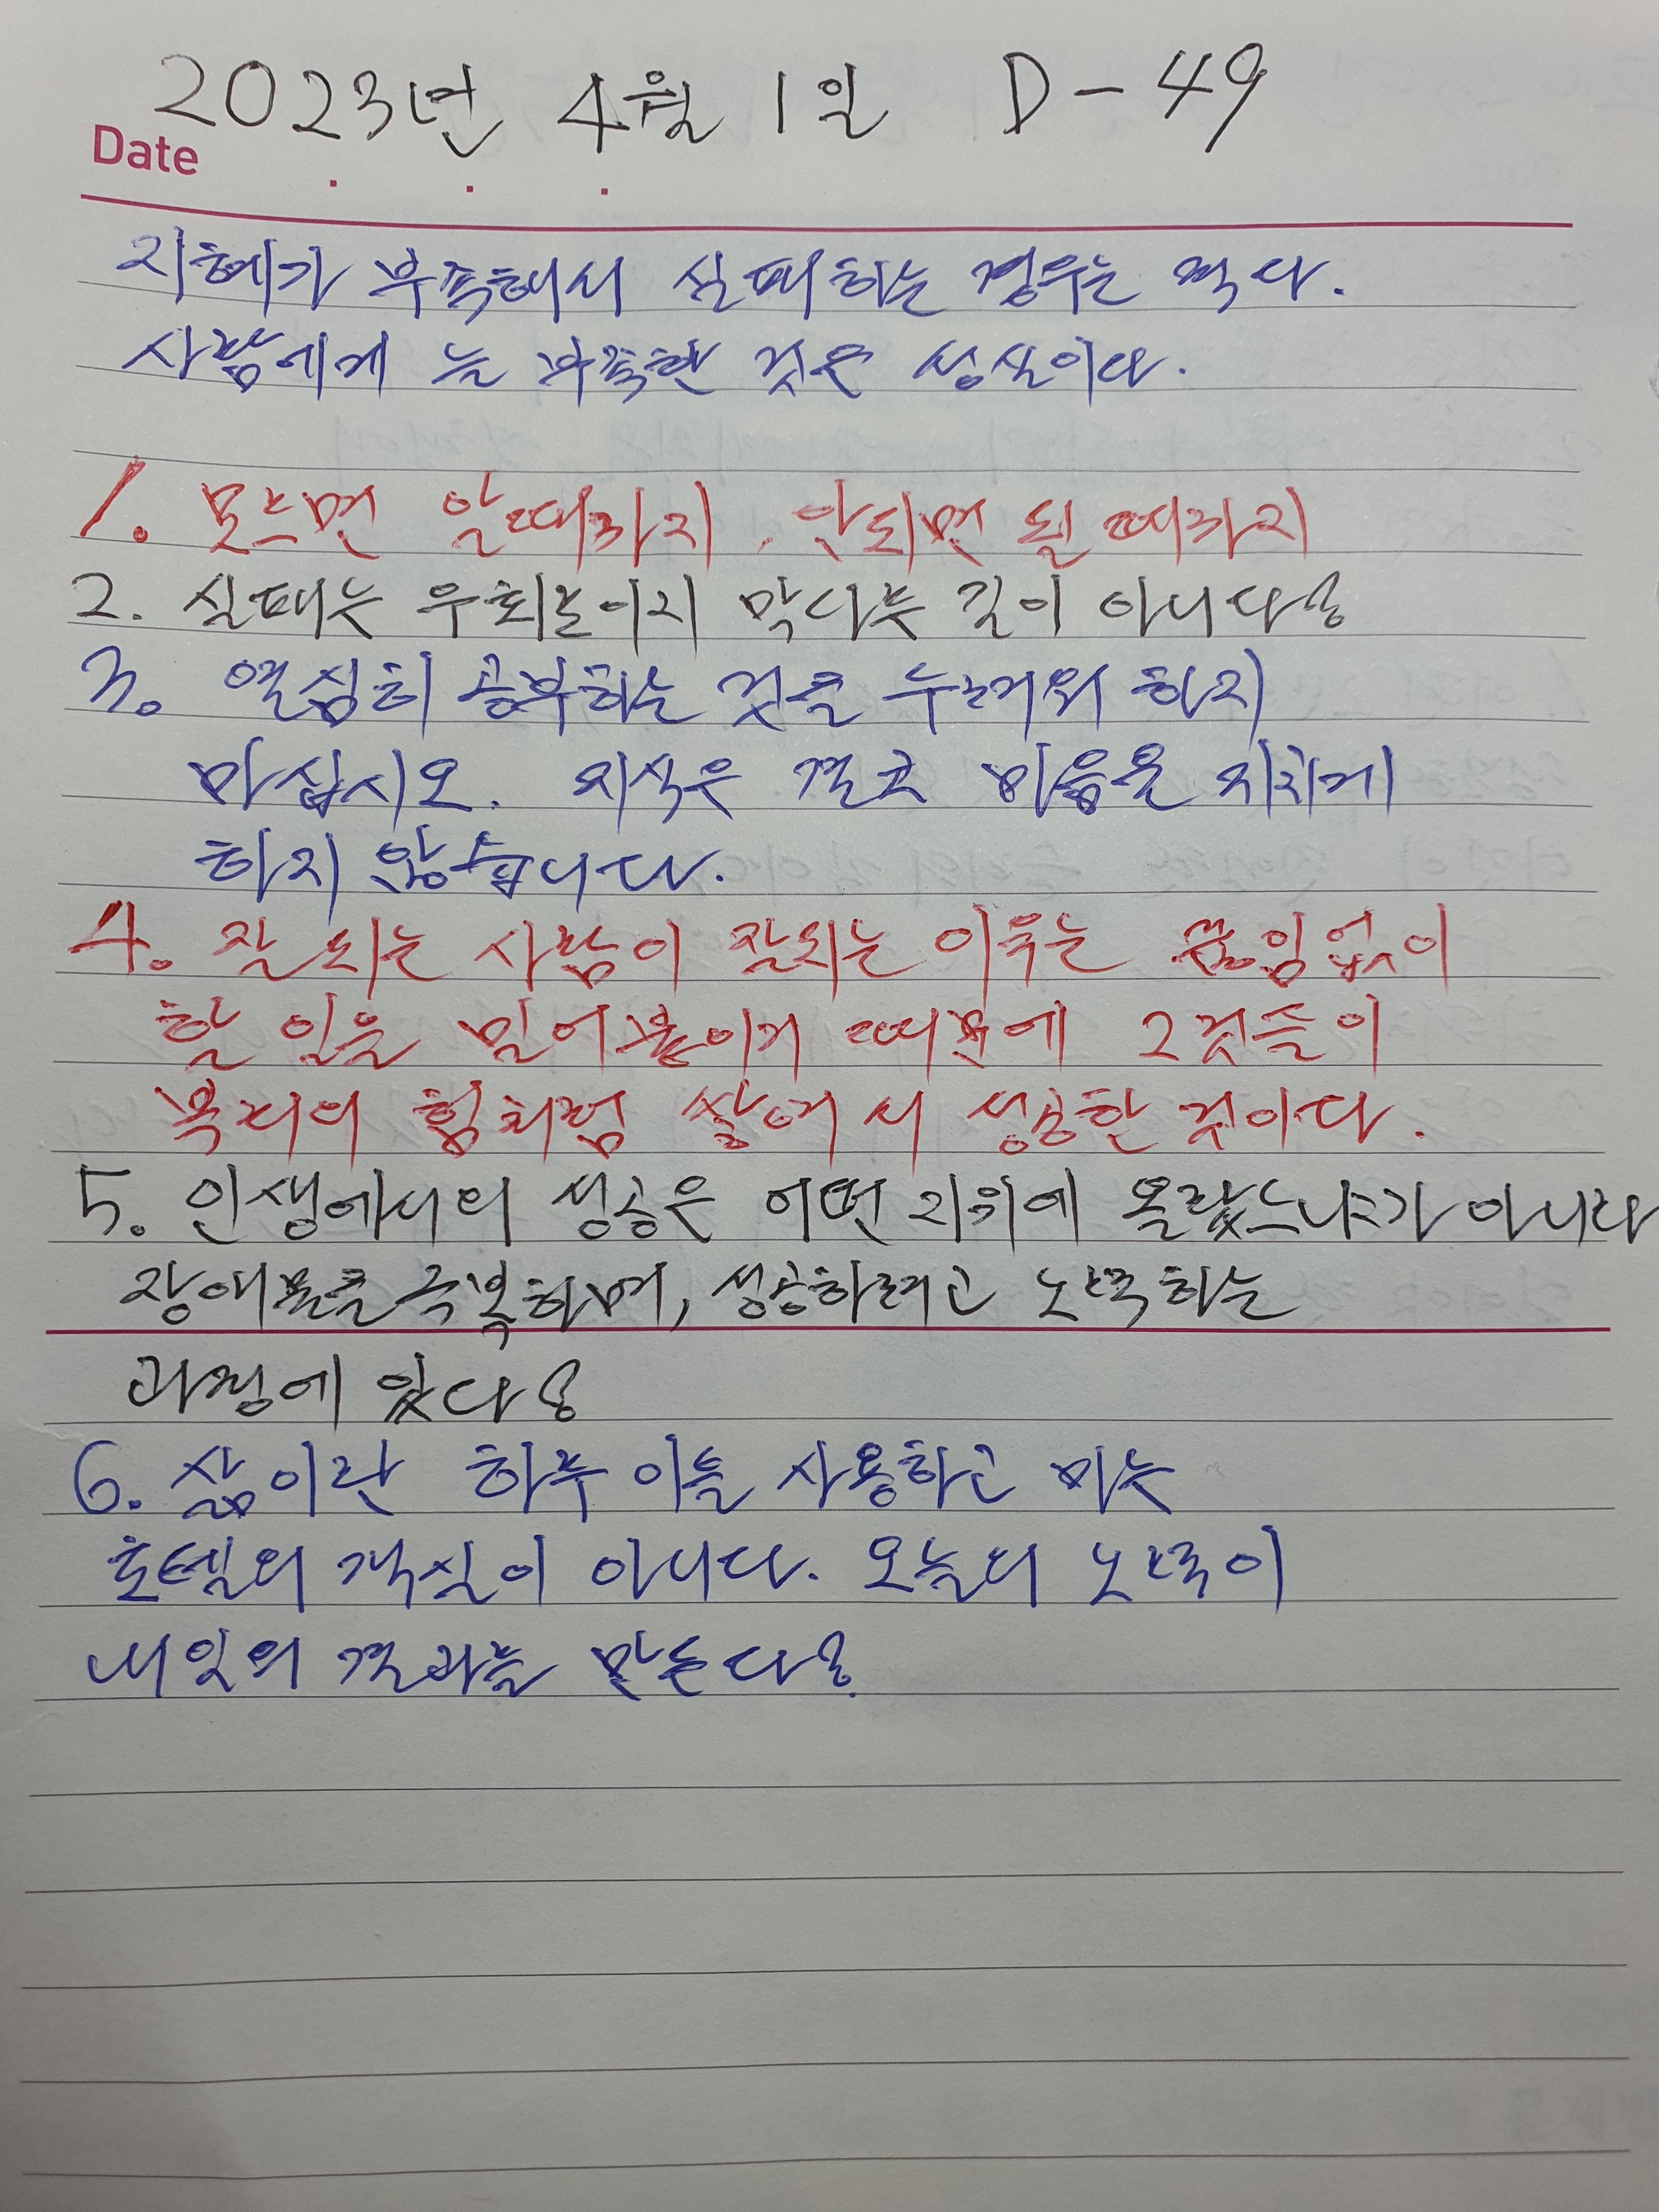 2023년 4월 1일 D-49
Date . . .
지혜가 부족해서 실패하는 경우는 적다.
사람에게 늘 부족한 것은 성실이다.
1. 모르면 알때까지, 안되면 될때까지
2. 실패는 우회로이지 막다른 길이 아니다!
3. 열심히 공부하는 것을 두려워 하지
마십시오. 지식은 결코 마음을 지치게
하지 않습니다.
4. 잘 되는 사람이 잘되는 이유는 끊임없이
할 일을 밀어붙이기 때문에 그것들이
복리의 힘처럼 쌓여서 성공한 것이다.
5. 인생에서의 성공은 어떤 지위에 올랐느냐가 아니라
장애물을 극복하며, 성공하려고 노력하는
과정에 있다!
6. 삶이란 하루 이틀 사용하고 마는
호텔의 객실이 아니다. 오늘의 노력이
내일의 결과를 만든다!